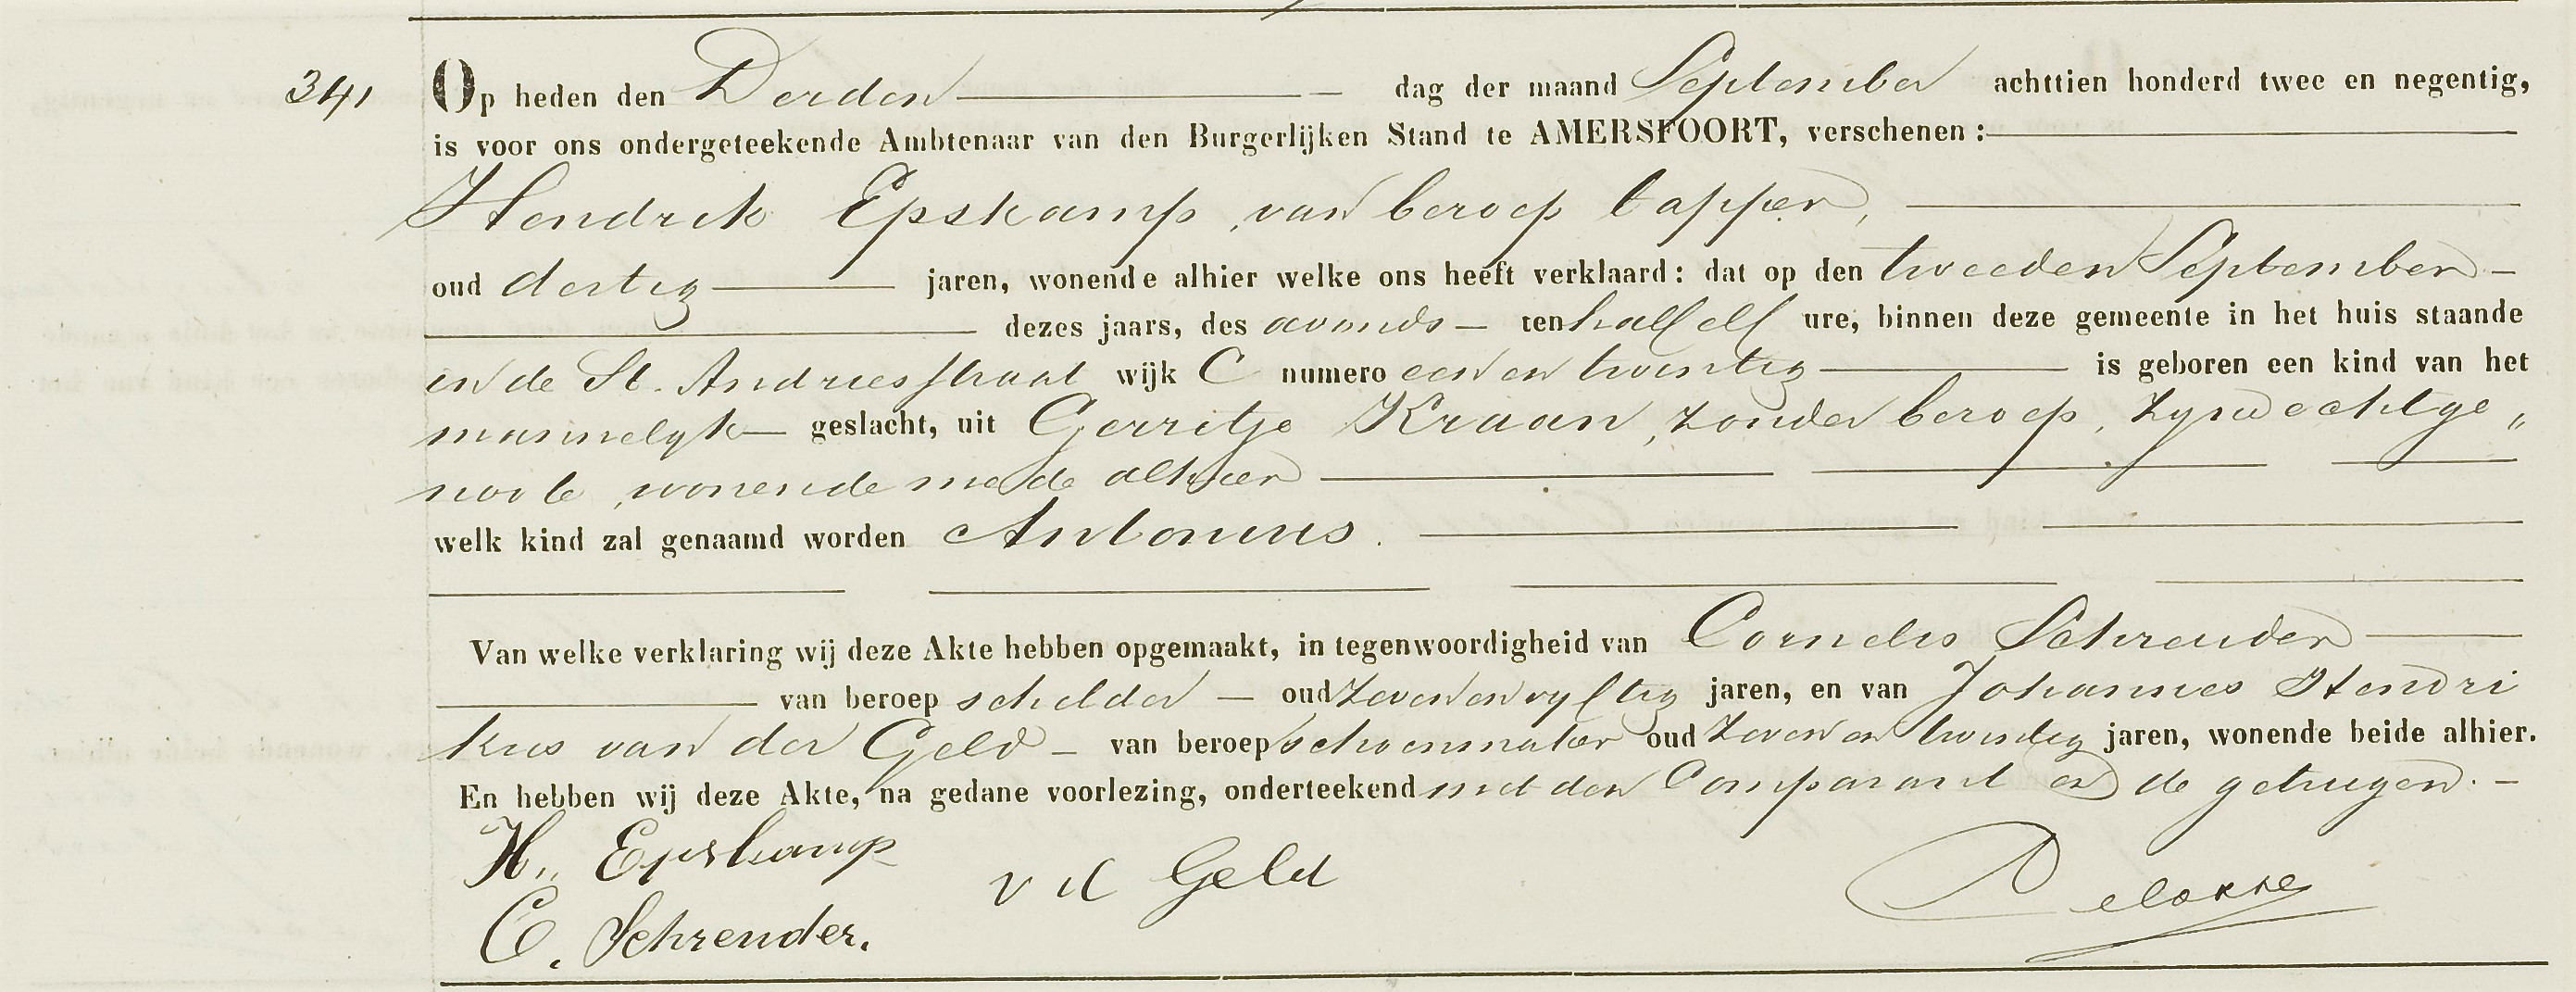 341 Op heden den Derden dag der maand September achttien honderd twee en negentig,
is voor ons ondergeteekende Ambtenaar van den Burgerlijken Stand te AMERSFOORT, verschenen :
Hendrik Epskamp, van beroep tapper,
oud dertig jaren, wonende alhier welke ons heeft verklaard: dat op den tweeden September
dezes jaars, des avonds ten half elf ure, binnen deze gemeente in het huis staande
in de St. Andriesstraat wijk C numero een en twintig is geboren een kind van het
mannelyk geslacht, uit Gerritje Kraan, zonder beroep, zyne echtge„
noote, wonende mede alhier
welk kind zal genaamd worden Antonius.
Van welke verklaring wij deze Akte hebben opgemaakt, in tegenwoordigheid van Cornelis Schreuder
van beroep schilder oud zeven en vyftig jaren, en van Johannes Hendri
kus van der Geld van beroep schoenmaker oud zeven en twintig jaren, wonende beide alhier.
En hebben wij deze Akte, na gedane voorlezing, onderteekend met den Comparant en de getuigen.
H. Epskamp
v d Geld
C. Schreuder.